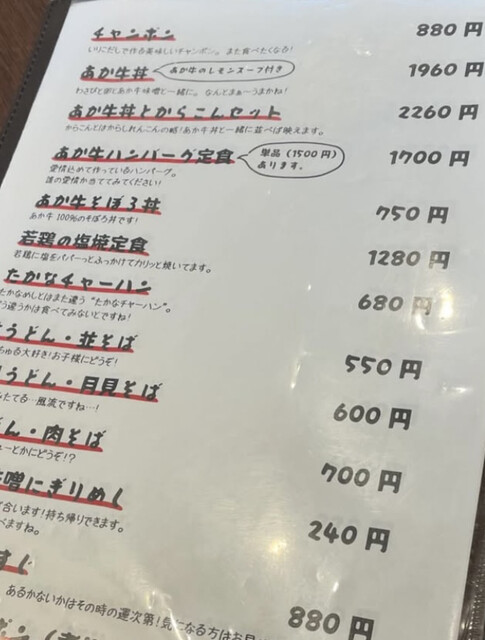 チャンポン 880 円
いりこだしで作る美味しいチャンポン。また食べたくなる!
あか牛丼 あか牛のレモンスープ付き 1960 円
わさびと卵とあか牛味噌と一緒に。なんとまぁ〜うまかね!
あか牛丼とからこんセット 2260 円
からこんとはからしれんこんの略!あか牛丼と一緒に並べば映えます。
あか牛ハンバーグ定食 単品(1500円)あります。 1700 円
愛情込めて作っているハンバーグ。
誰の愛情か当ててみてください!
あか牛そぼろ丼 750 円
あか牛 100%のそぼろ丼です!
若鶏の塩焼定食 1280 円
若鶏に塩をパパーっとふっかけてカリッと焼いてます。
たかなチャーハン 680 円
たかなめしとはまた違う“たかなチャーハン”。
う違うかは食べてみないとですね!
うどん・並そば 550 円
ちゅる大好き!お子様にどうぞ!
うどん・月見そば 600 円
みたてる…風流ですね…!
ん・肉そば 700 円
ューとかにどうぞ!?
噌にぎりめし 240 円
て合います!持ち帰りできます。
べますね。
880 円
あるかないかはその時の運次第!気になる方はお